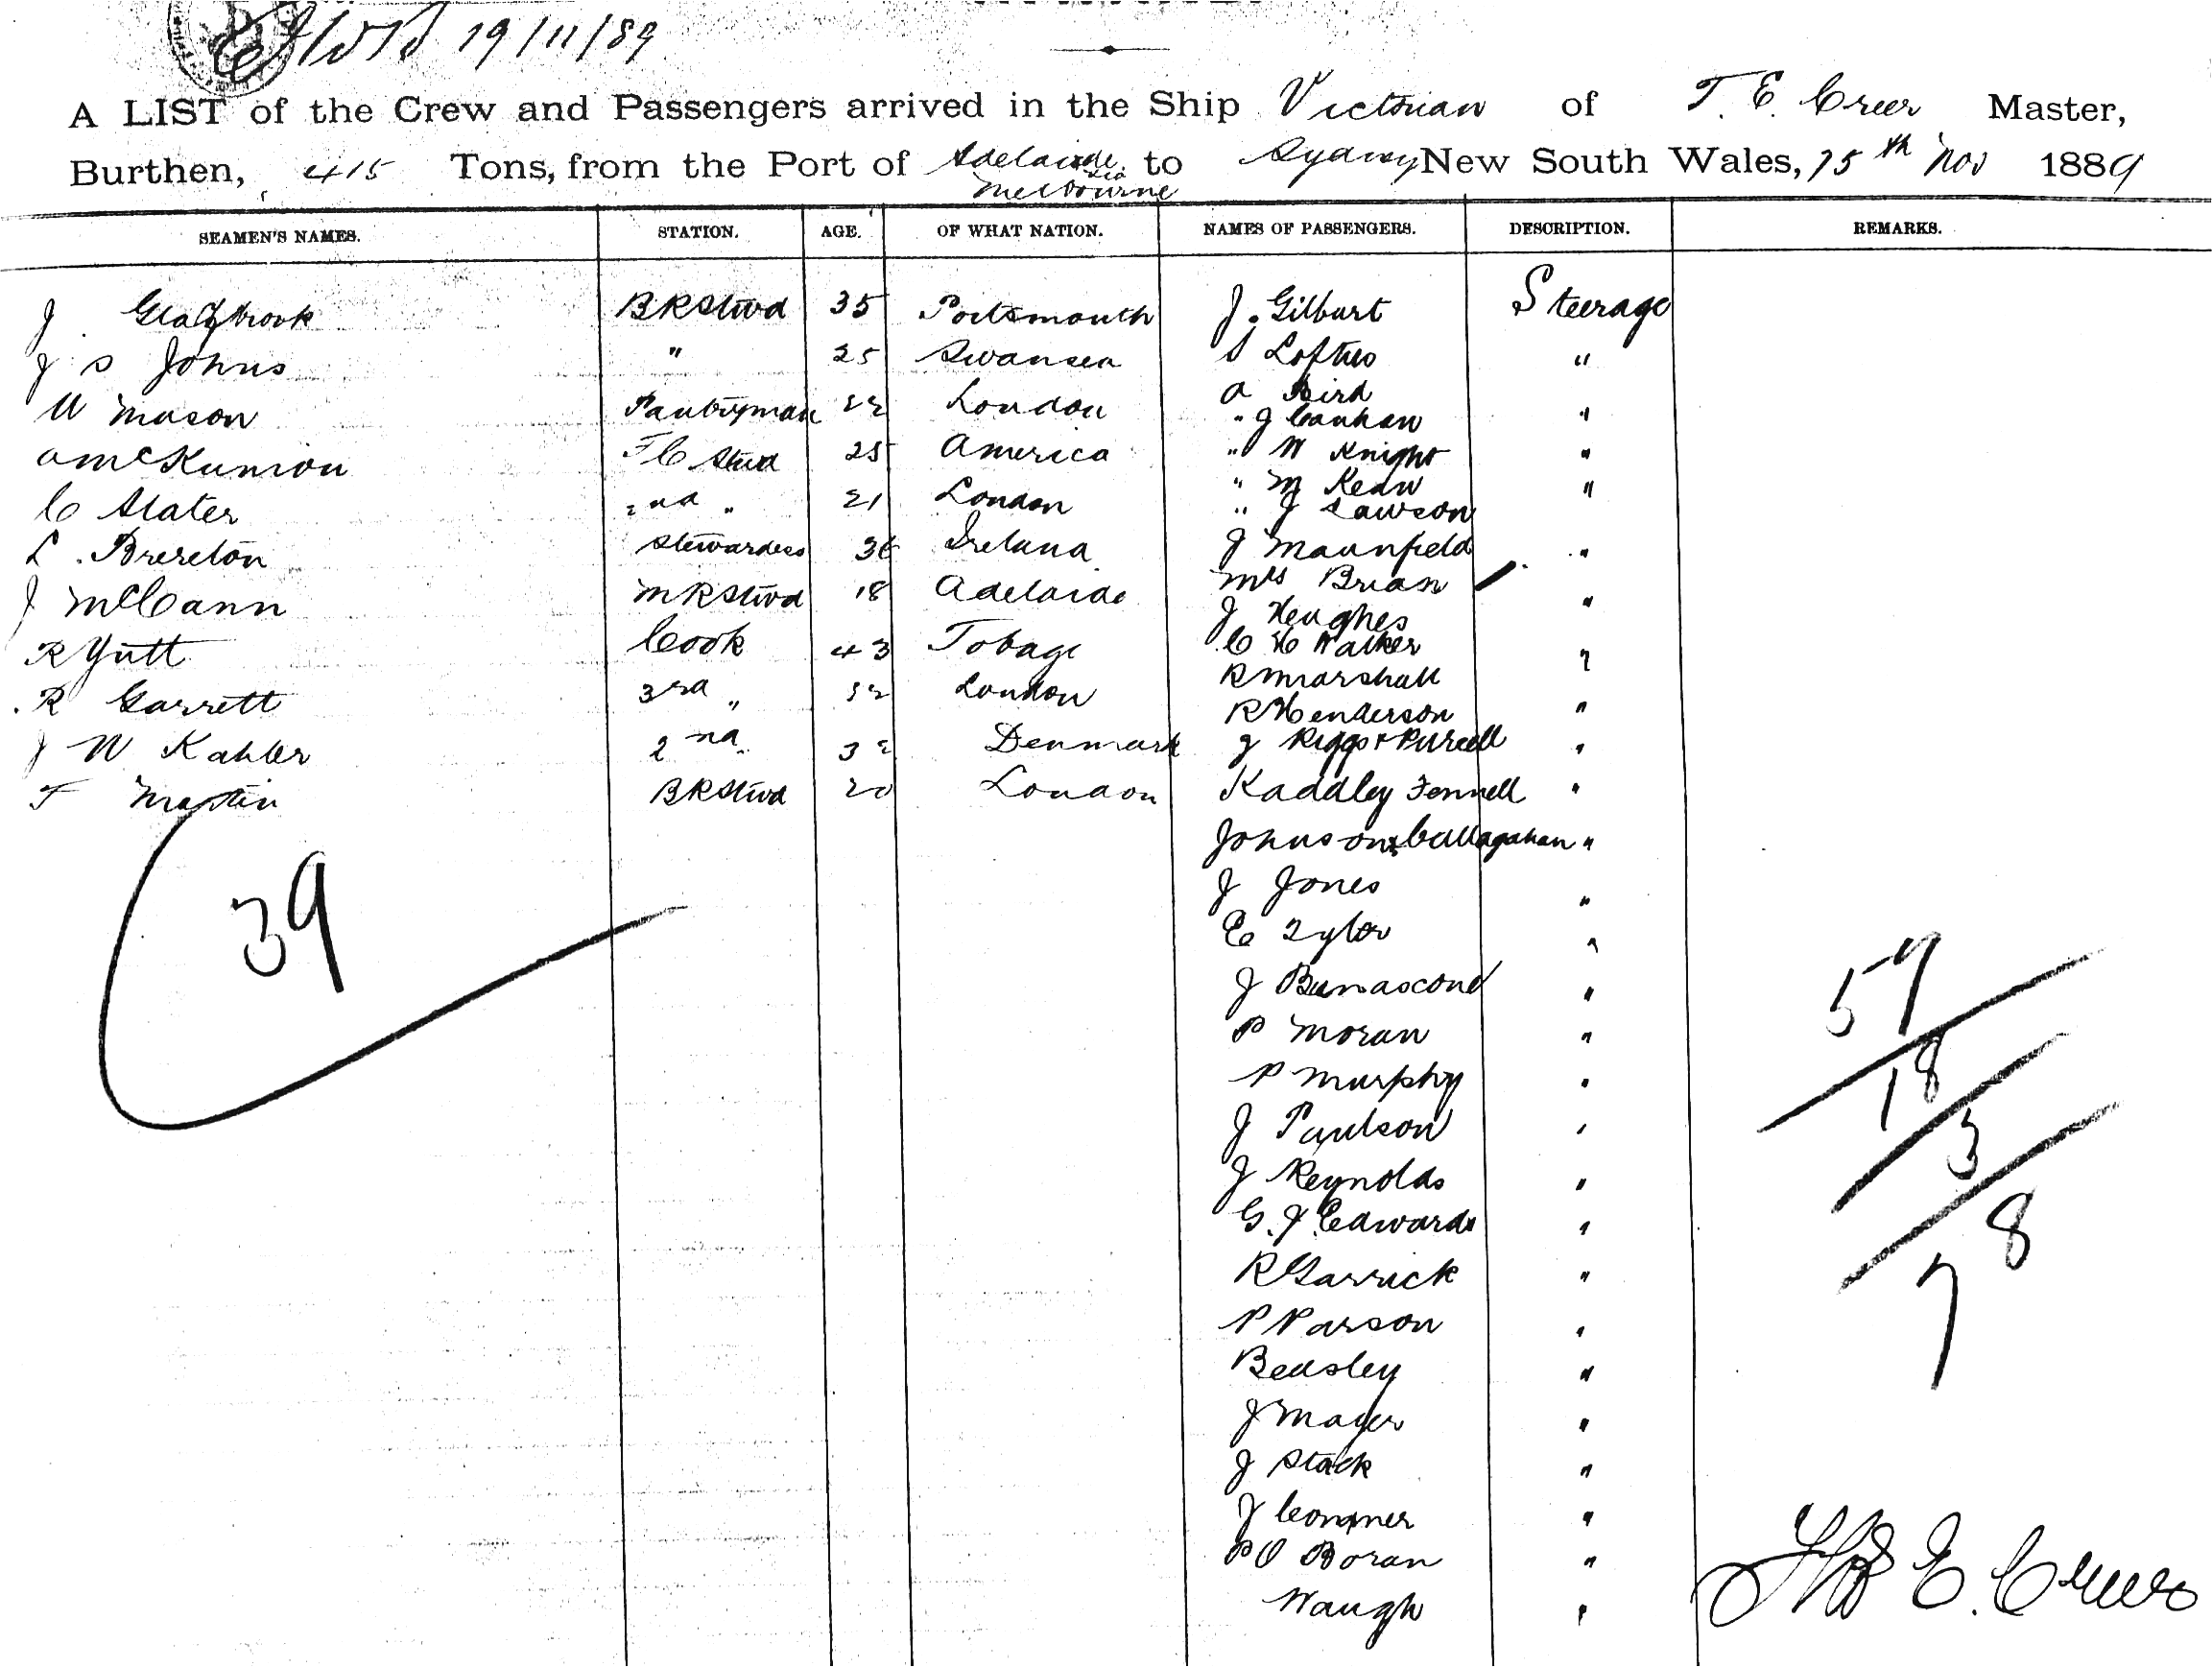 19/11/89
A LIST of the Crew and Passengers arrived in the Ship Victorian of T. E. Creer Master,
Burthen, 415 Tons, from the Port of Adelaide via Melbourne to Sydney New South Wales, 15th Nov 1889
SEAMEN'S NAMES. STATION. AGE. OF WHAT NATION. NAMES OF PASSENGERS. DESCRIPTION. REMARKS.
J Glazbrook BRStwd 35 Portsmouth J. Gilbart Steerage
J S Johns " 25 Swansea S Loftus "
W Mason Pantryman 22 London A Bird
" J Cankan "
A McKunion F C Stwd 25 America " W Knight "
C Slater 2nd " 21 London " M Keaw "
" J Lawson
L. Brereton Stewardess 36 Ireland J Maunfield "
J McCann MRStwd 18 Adelaide Mrs Brian
J Heughes "
R Yutt Cook 43 Tobago C H Walker
R Marshall "
R Garrett 3rd " London R Henderson "
J W Kahler 2nd 32 Denmark J Riggs + Purcell "
T Martin BRStwd 20 London Kaddley Fennell "
Johnson & Callagahan "
39 J Jones "
E Tyler "
J Bunascond "
59
P Moran "
18
P Murphy "
J Paulson "
3
J Reynolds "
G. J. Edwards "
78
R Garrick "
P Parson "
Beasley "
J Mayer "
J Stack "
J Connner "
P O Boran "
Thos E. Creer
Waugh "